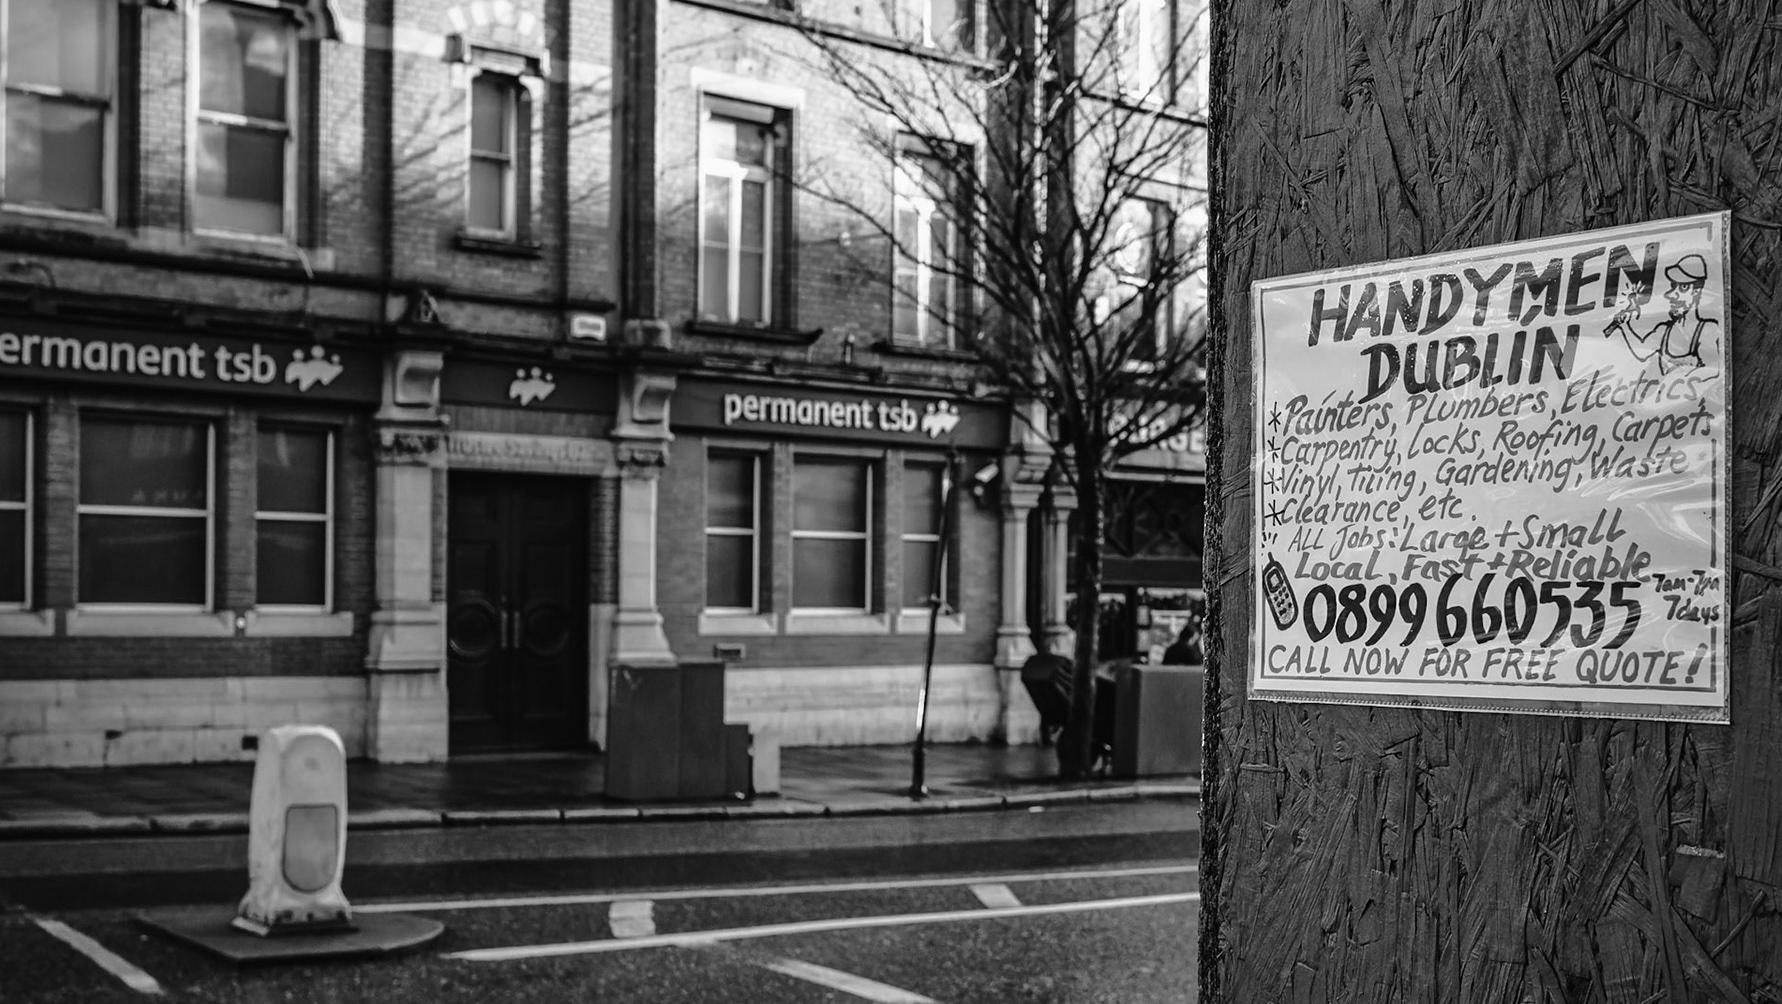 ermanent tsb
permanent tsb
HANDYMEN
DUBLIN
*Painters, Plumbers, Electrics,
*Carpentry, Locks, Roofing, Carpets
*Vinyl, Tiling, Gardening, Waste
*Clearance, etc.
ALL Jobs: Large + Small
Local, Fast + Reliable
0899660535
7am-7pm
7days
CALL NOW FOR FREE QUOTE!